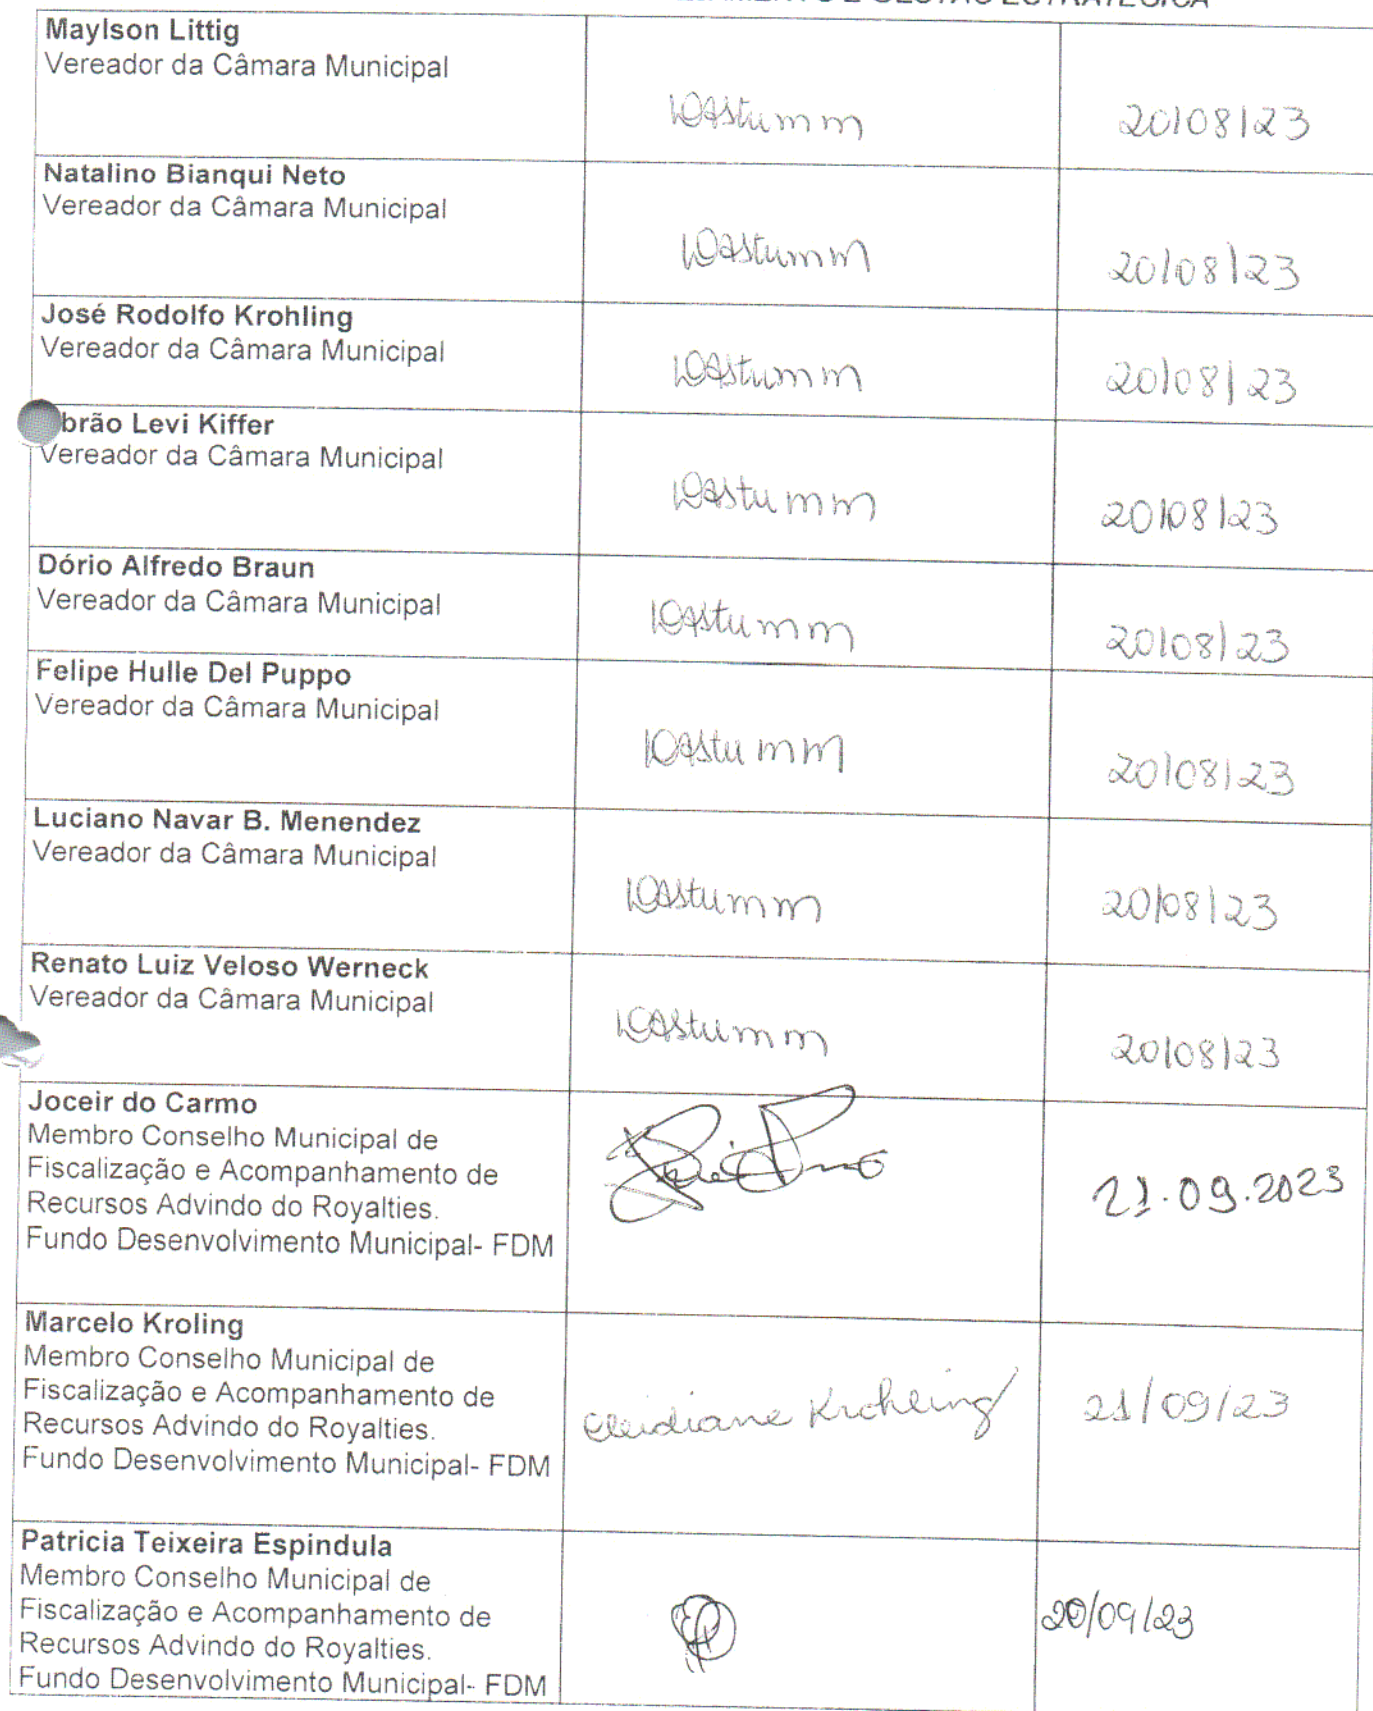 E GESTÃO ESTRATÉGICA
Maylson Littig
Vereador da Câmara Municipal
20/08/23
Natalino Bianqui Neto
Vereador da Câmara Municipal
20/08/23
José Rodolfo Krohling
Vereador da Câmara Municipal
20/08/23
brão Levi Kiffer
Vereador da Câmara Municipal
20/08/23
Dório Alfredo Braun
Vereador da Câmara Municipal
20/08/23
Felipe Hulle Del Puppo
Vereador da Câmara Municipal
20/08/23
Luciano Navar B. Menendez
Vereador da Câmara Municipal
20/08/23
Renato Luiz Veloso Werneck
Vereador da Câmara Municipal
20/08/23
Joceir do Carmo
Membro Conselho Municipal de
Fiscalização e Acompanhamento de
Recursos Advindo do Royalties.
Fundo Desenvolvimento Municipal- FDM
21.09.2023
Marcelo Kroling
Membro Conselho Municipal de
Fiscalização e Acompanhamento de
Recursos Advindo do Royalties.
Fundo Desenvolvimento Municipal- FDM
Cleidiane Krohling
21/09/23
Patricia Teixeira Espindula
Membro Conselho Municipal de
Fiscalização e Acompanhamento de
Recursos Advindo do Royalties.
Fundo Desenvolvimento Municipal- FDM
20/09/23